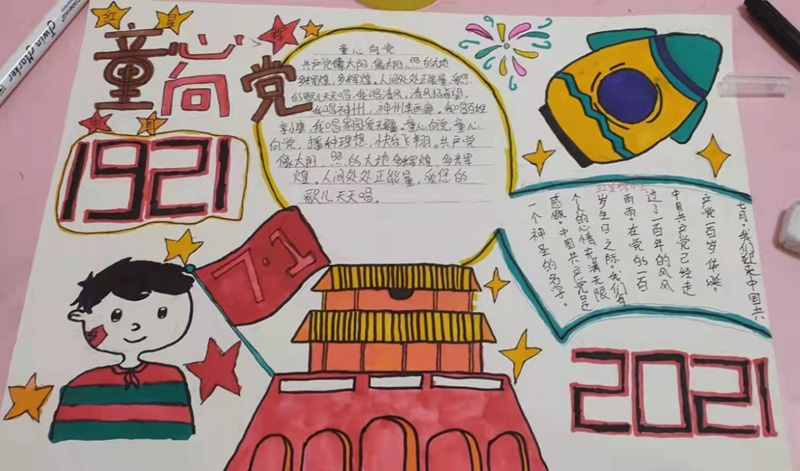 童心
向党
1921
童心向党
共产党像太阳,像太阳,照的大地
多辉煌,多辉煌,人间处处正能量,爱您
的歌儿天天唱。我唱清风,清风扬希望,
我唱神州,神州 画廊。我唱百姓
小康,我唱家园爱无疆。童心向党,童心
向党,播种理想,快乐飞翔。共产党
像太阳,照的大地多辉煌,多辉
煌,人间处处正能量,爱您的
歌儿天天唱。
七月,我们迎来中国共
产党一百岁华诞。
中国共产党已经走
过了一百年的风风
雨雨,在党的一百
岁生日之际,我们每
个人的心情充满无限
感慨。中国共产党是
一个神圣的名字。
7·1
2021
Twin Marker